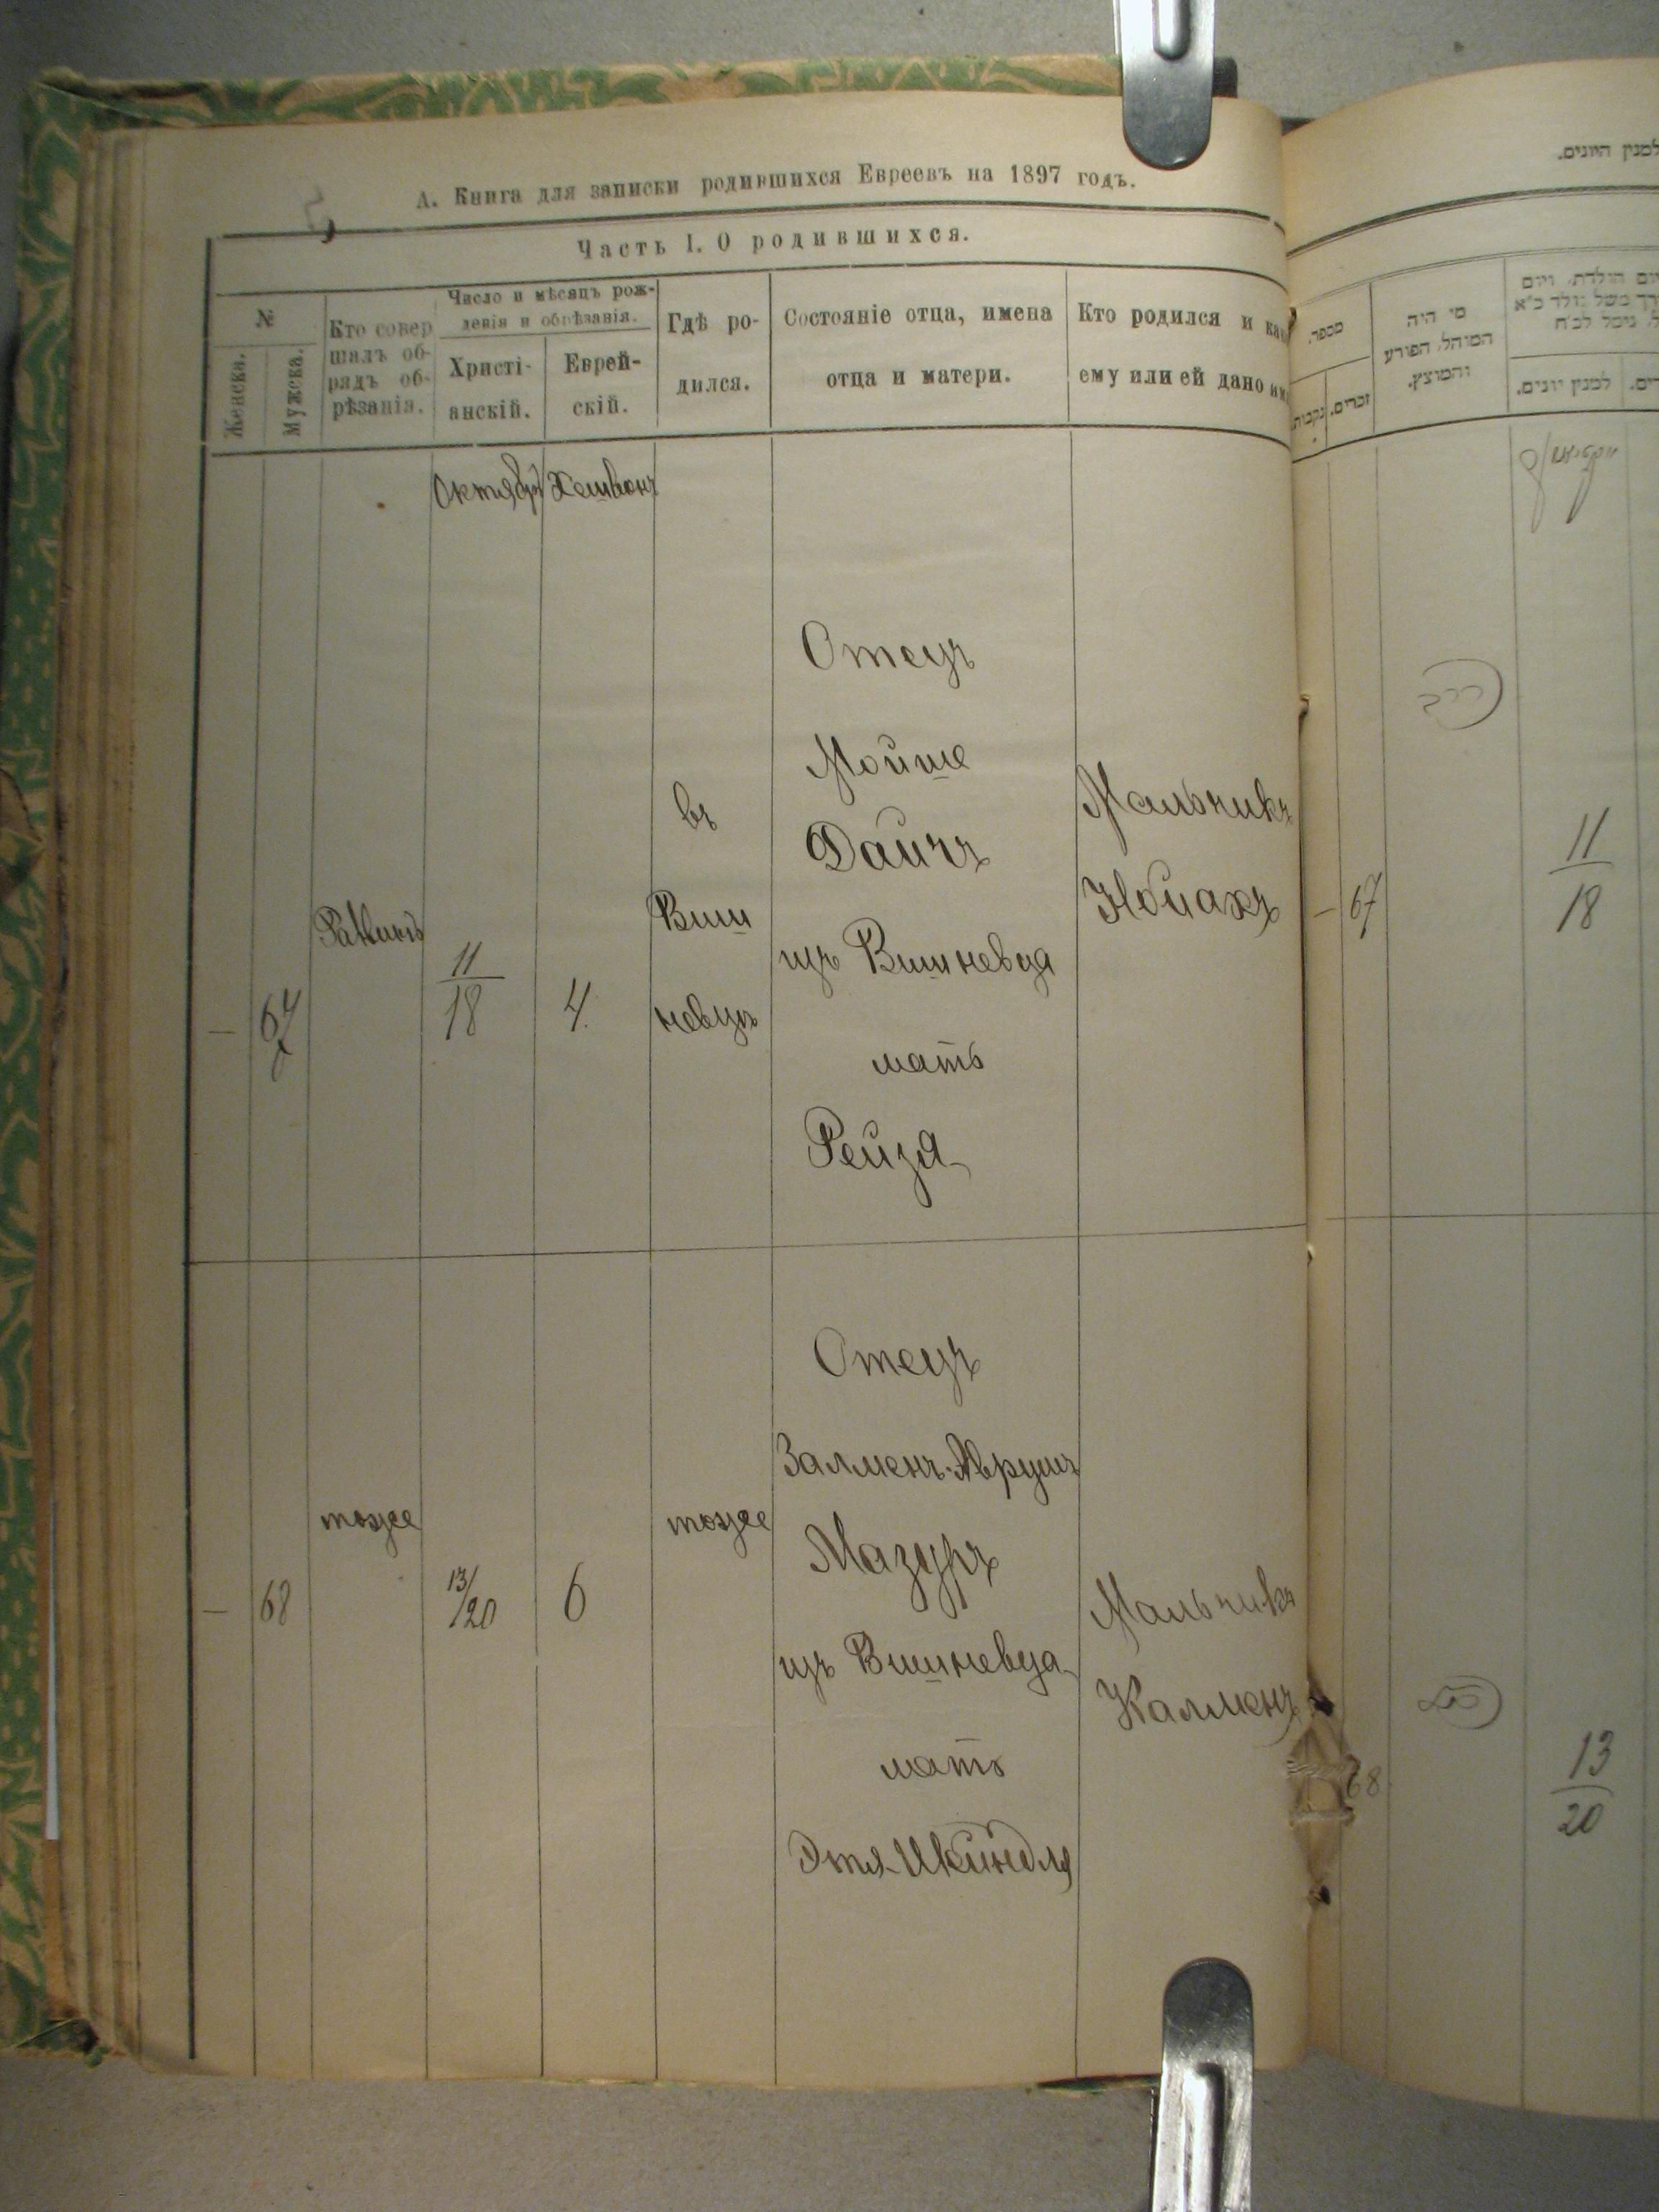 А. Книга для записки родившихся Евреевъ на 1897 годъ.
Часть I. О родившихся.
№
Женска.
Мужска.
Кто совер
шалъ об-
рядъ об-
рѣзанія.
Число и мѣсяцъ рож-
денія и обрѣзанія.
Христі-
анскій.
Еврей-
скій.
Гдѣ ро-
дился.
Состояніе отца, имена
отца и матери.
Кто родился и
ему или ей дано
Октябрь
Хешвонъ
—
67
Раввинъ
11
18
4.
въ
Виш
невцѣ
Отецъ
Мойше
Дайчъ
изъ Вишневца
мать
Рейзя
Мальчикъ
Нойахъ
—
68
тоже
13/20
6
тоже
Отецъ
Залменъ-Аврумъ
Мазуръ
изъ Вишневца
мать
Этя-
Мальчикъ
Калменъ
למנין היונים.
מספר.
נקבות.
זכרים.
מי היה
המוהל, הפורע
והמוצץ.
למנין יונים.
— 67
11
18
68
13
20